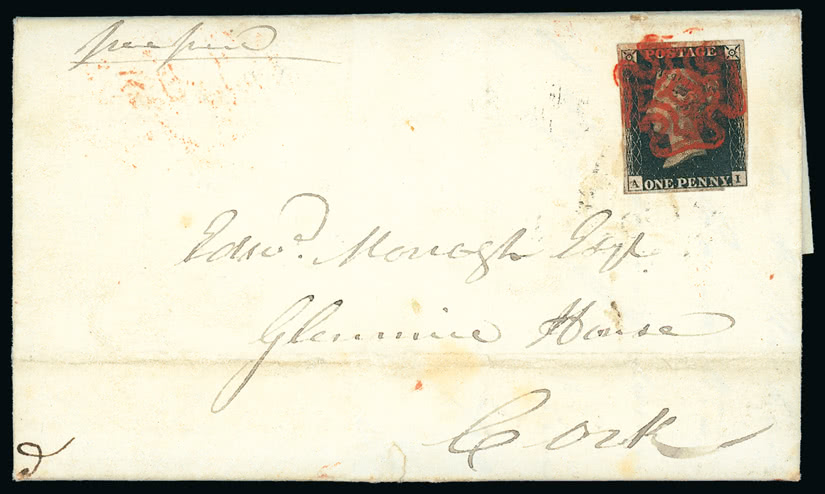 prepaid
POSTAGE
A ONE PENNY I
Edwd. Morrogh Esqr.
Glenmire House
Cork